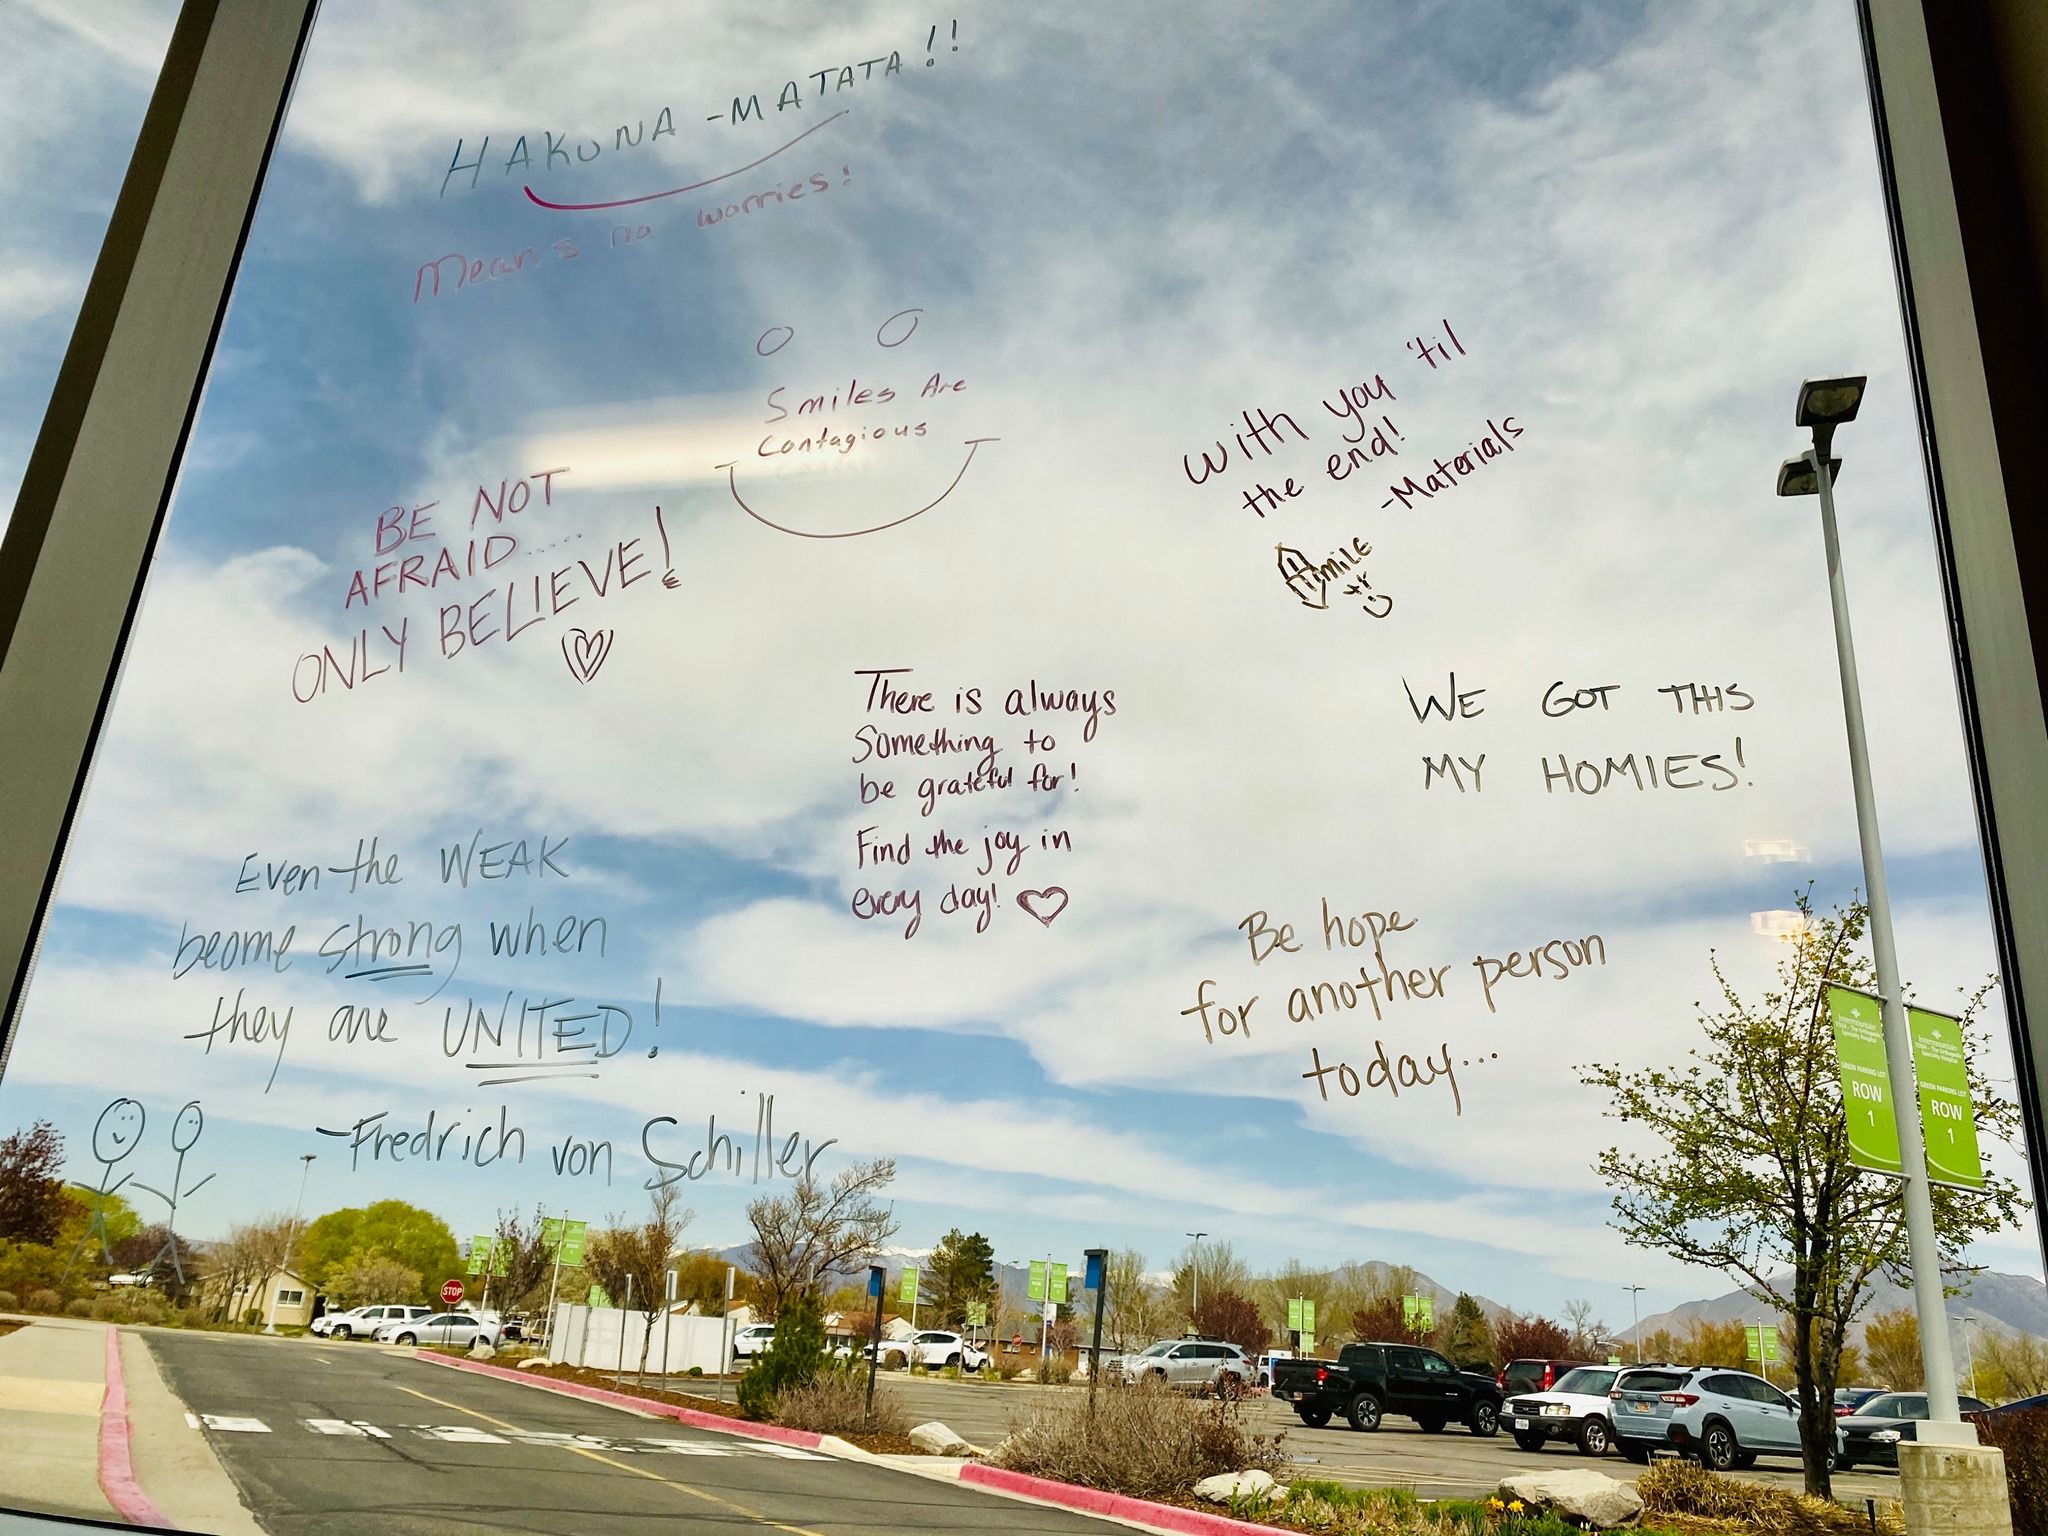 HAKUNA-MATATA!!
Means no worries!
Smiles Are
Contagious
with you 'til
the end!
-Materials
Smile
BE NOT
AFRAID.....
ONLY BELIEVE!
There is always
Something to
be grateful for!
Find the joy in
every day!
WE GOT THIS
MY HOMIES!
Even the WEAK
beome strong when
they are UNITED!
-Fredrich von Schiller
Be hope
for another person
today...
Intermountain
TOSH - The Orthopedic
Specialty Hospital
GREEN PARKING LOT
ROW
1
Intermountain
TOSH - The Orthopedic
Specialty Hospital
GREEN PARKING LOT
ROW
1
STOP